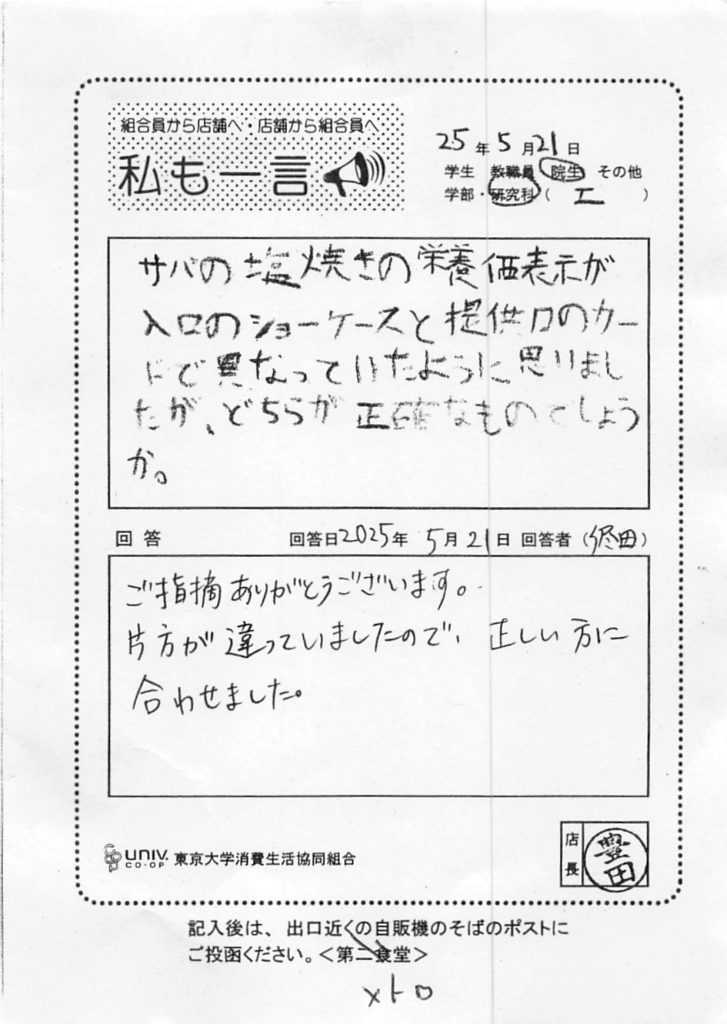 組合員から店舗へ・店舗から組合員へ
私も一言
25年5月21日
学生 教職員 院生 その他
学部・研究科(工)
サバの塩焼きの栄養価表示が
入口のショーケースと提供口のカー
ドで異なっていたように思いまし
たが、どちらが正確なものでしょう
か。
回答 回答日2025年5月21日 回答者(終田)
ご指摘ありがとうございます。
片方が違っていましたので、正しい方に
合わせました。
UNIV. CO-OP 東京大学消費生活協同組合
店長 豊田
記入後は、出口近くの自販機のそばのポストに
ご投函ください。<第二食堂>
メトロ